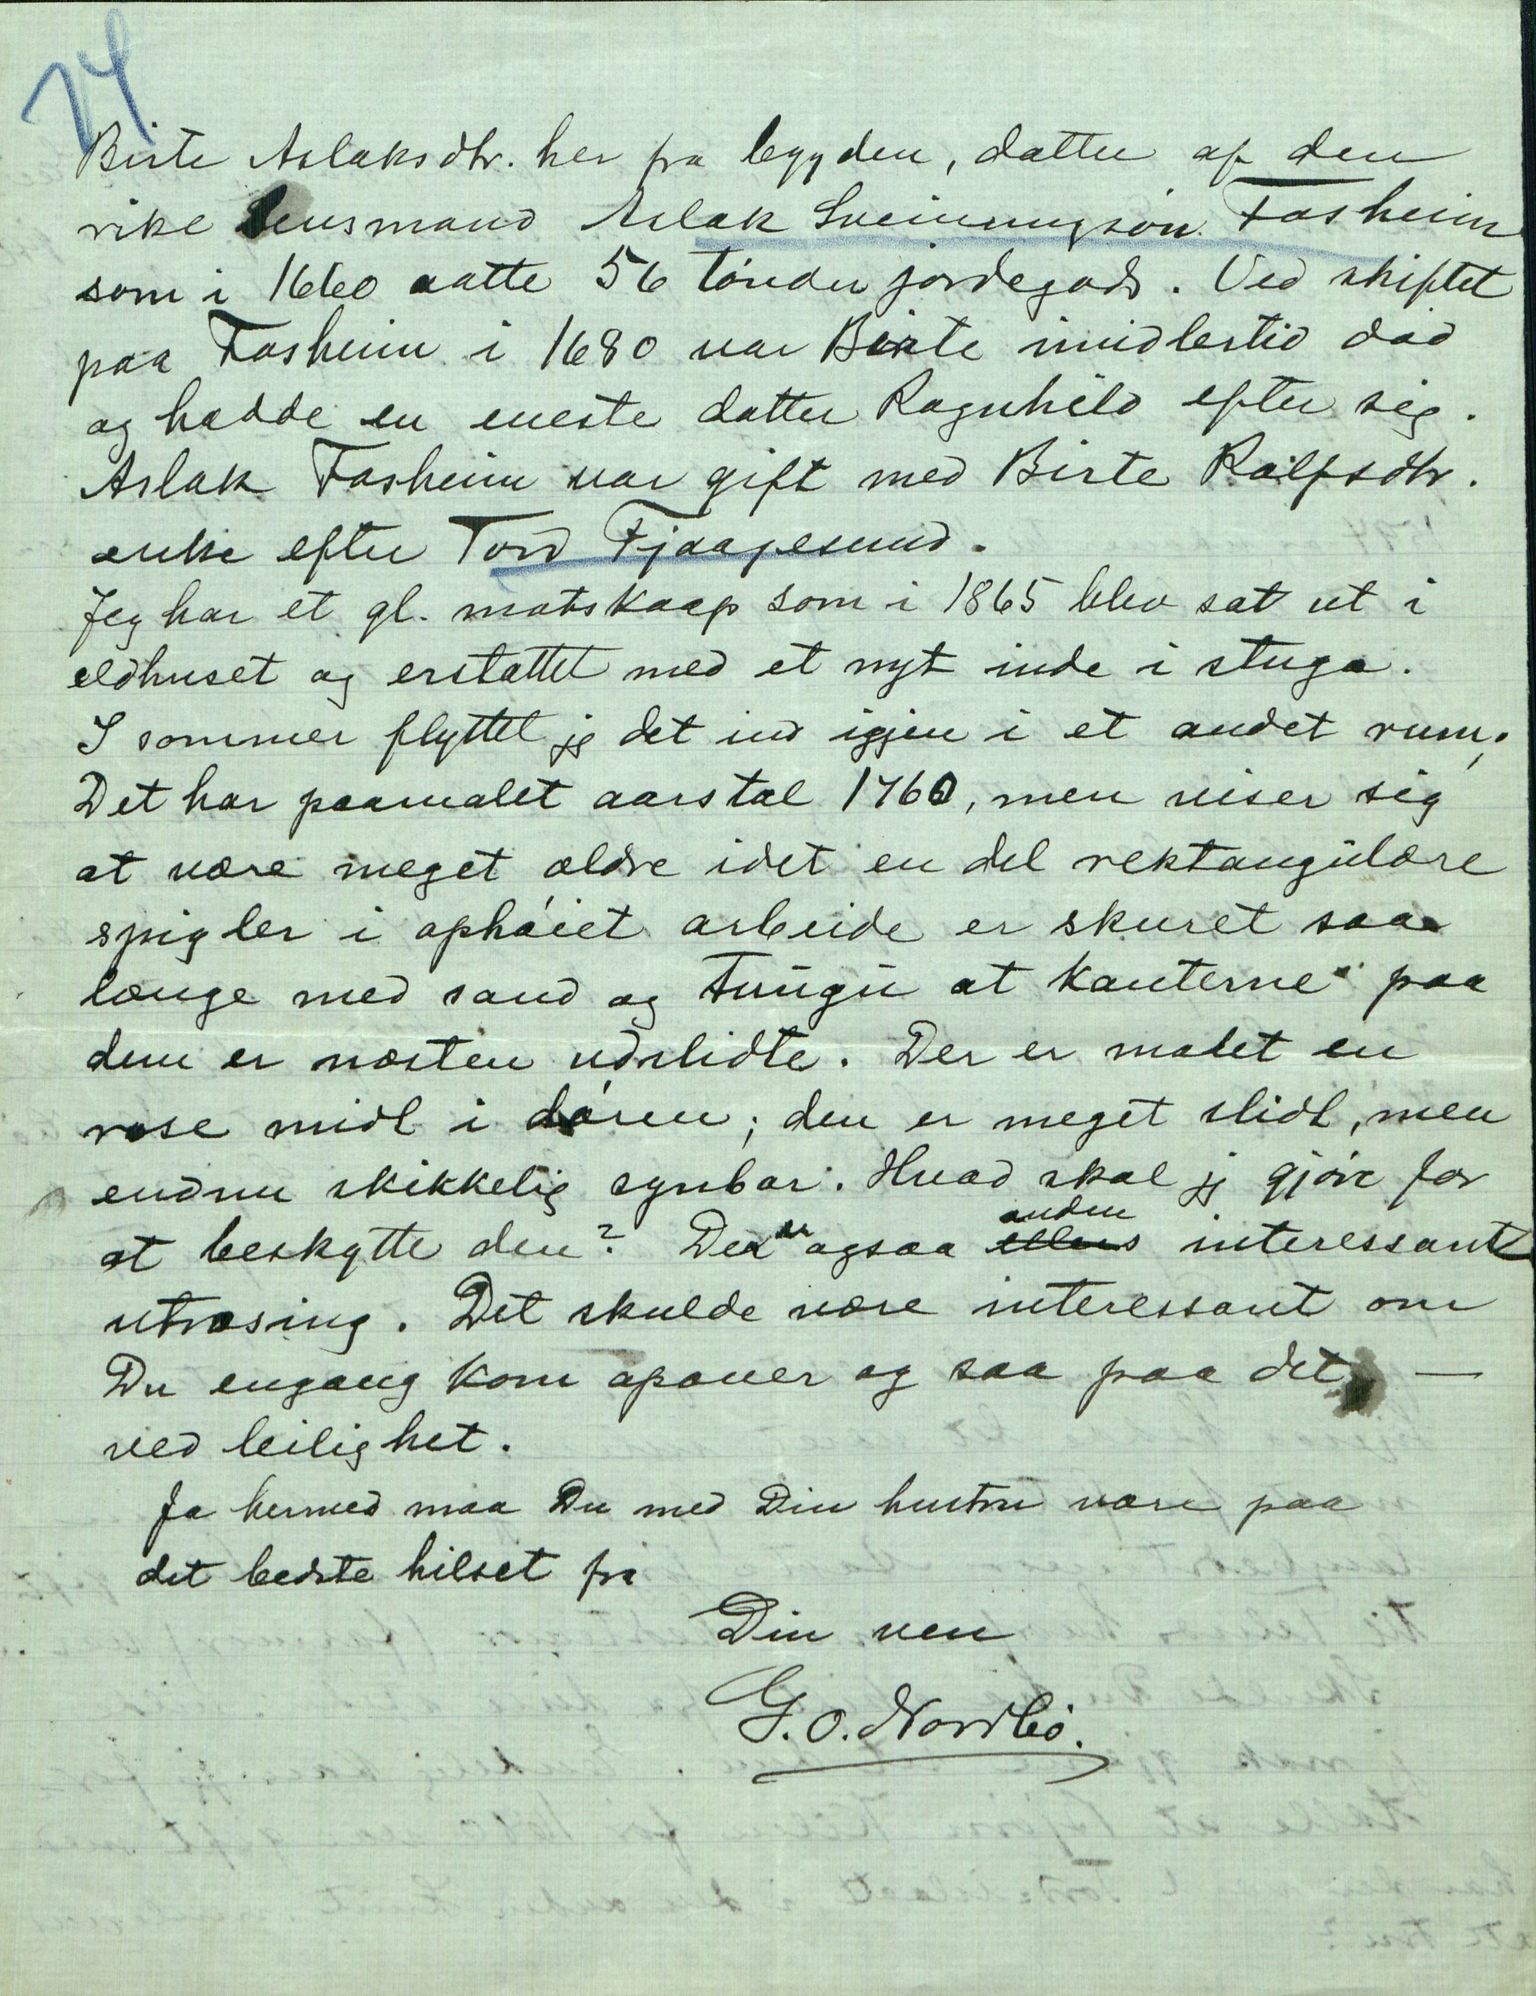 24
Birte Aslaksdtr. her fra bygden, datter af den
rike lensmand Aslak Sveinungsön Fosheim
som i 1660 aatte 56 tönder jordegods. Ved skiftet
paa Fosheim i 1680 var Birte imidlertid död
og hadde en eneste datter Ragnhild efter sig.
Aslak Fosheim var gift med Birte Rolfsdtr.
enke efter Tord Fjaagesund.
Jeg har et gl. matskaap som i 1865 blev sat ut i
eldhuset og erstattet med et nyt inde i stuga.
I sommer flyttet jg det ind igjen i et andet rum;
Det har paamalet aarstal 1760, men viser sig
at være meget ældre idet en del rektangulære
spigler i ophöiet arbeide er skuret saa
længe med sand og tvugu at kanterne paa
dem er næsten udslidte. Der er malet en
rose midt i dören; den er meget slidt, men
endnu skikkelig synbar. Hvad skal jg gjöre for
at beskytte den? Der er ogsaa ellers anden interessant
utrosing. Det skulde være interessant om
Du engang kom opover og saa paa det, —
ved leilighet.
Ja hermed maa Du med Din hustru være paa
det bedste hilset fra
Din ven
G. O. Nordbö.